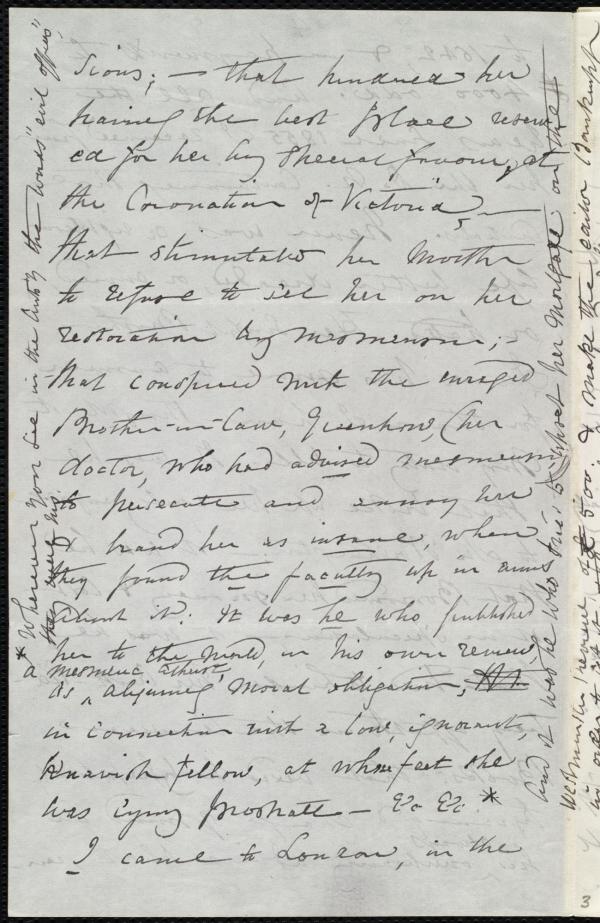 sions; — that hindered her
having the best place reserv-
ed for her by special favour, at
the Coronation of Victoria, —
that stimulated her Mother
to refuse to see her on her
restoration by mesmerism; —
that conspired with the enraged
Brother-in-Law, Greenhow, (her
doctor, who had advised mesmerism)
to persecute and annoy her
& brand her as insane, when
they found the faculty up in arms
about it. It was he who published
her to the world, in his own review,
as a mesmeric atheist, abjuring moral obligation,
in connection with a low, ignorant,
knavish fellow, at whose feet she
was lying prostrate — &c &c. *
I came to London, in the
* Wherever you see in the Autoby the words "evil offices",
they were his
And it was he who tried to upset her Mortgage on the
Westminster review of £500. & make the Editor Bankrupt
in order to get it
3